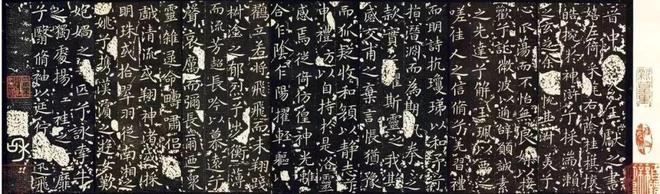 晉中書令王獻之書
嬉左倚采旄右蔭桂旗攘
皓腕於神滸兮採湍瀨
之玄芝余情悅其淑美兮
心振蕩而不怡無良媒以接
歡兮託微波以通辭願誠素
之先達兮解玉珮而要之
嗟佳人之信脩兮羌習禮
而明詩抗瓊珶以和予兮
指潛淵而為期執拳拳之
款實兮懼斯靈之我欺
感交甫之棄言悵猶豫
而狐疑收和顏以靜志兮
申禮防以自持於是洛靈
感焉徙倚仿偟神光離
合乍陰乍陽擢輕軀以
鶴立若將飛而未翔踐
椒塗之郁烈兮步衡薄
而流芳超長吟以慕遠兮
聲哀厲而彌長爾乃眾
靈雜沓命疇嘯侶或
戲清流或翔神渚或採
明珠或拾翠羽從南湘之
二妃攜漢濱之游女歎
匏媧之無匹兮詠牽牛
之獨處揚輕袿之猗靡
兮翳脩袖以延佇體迅飛